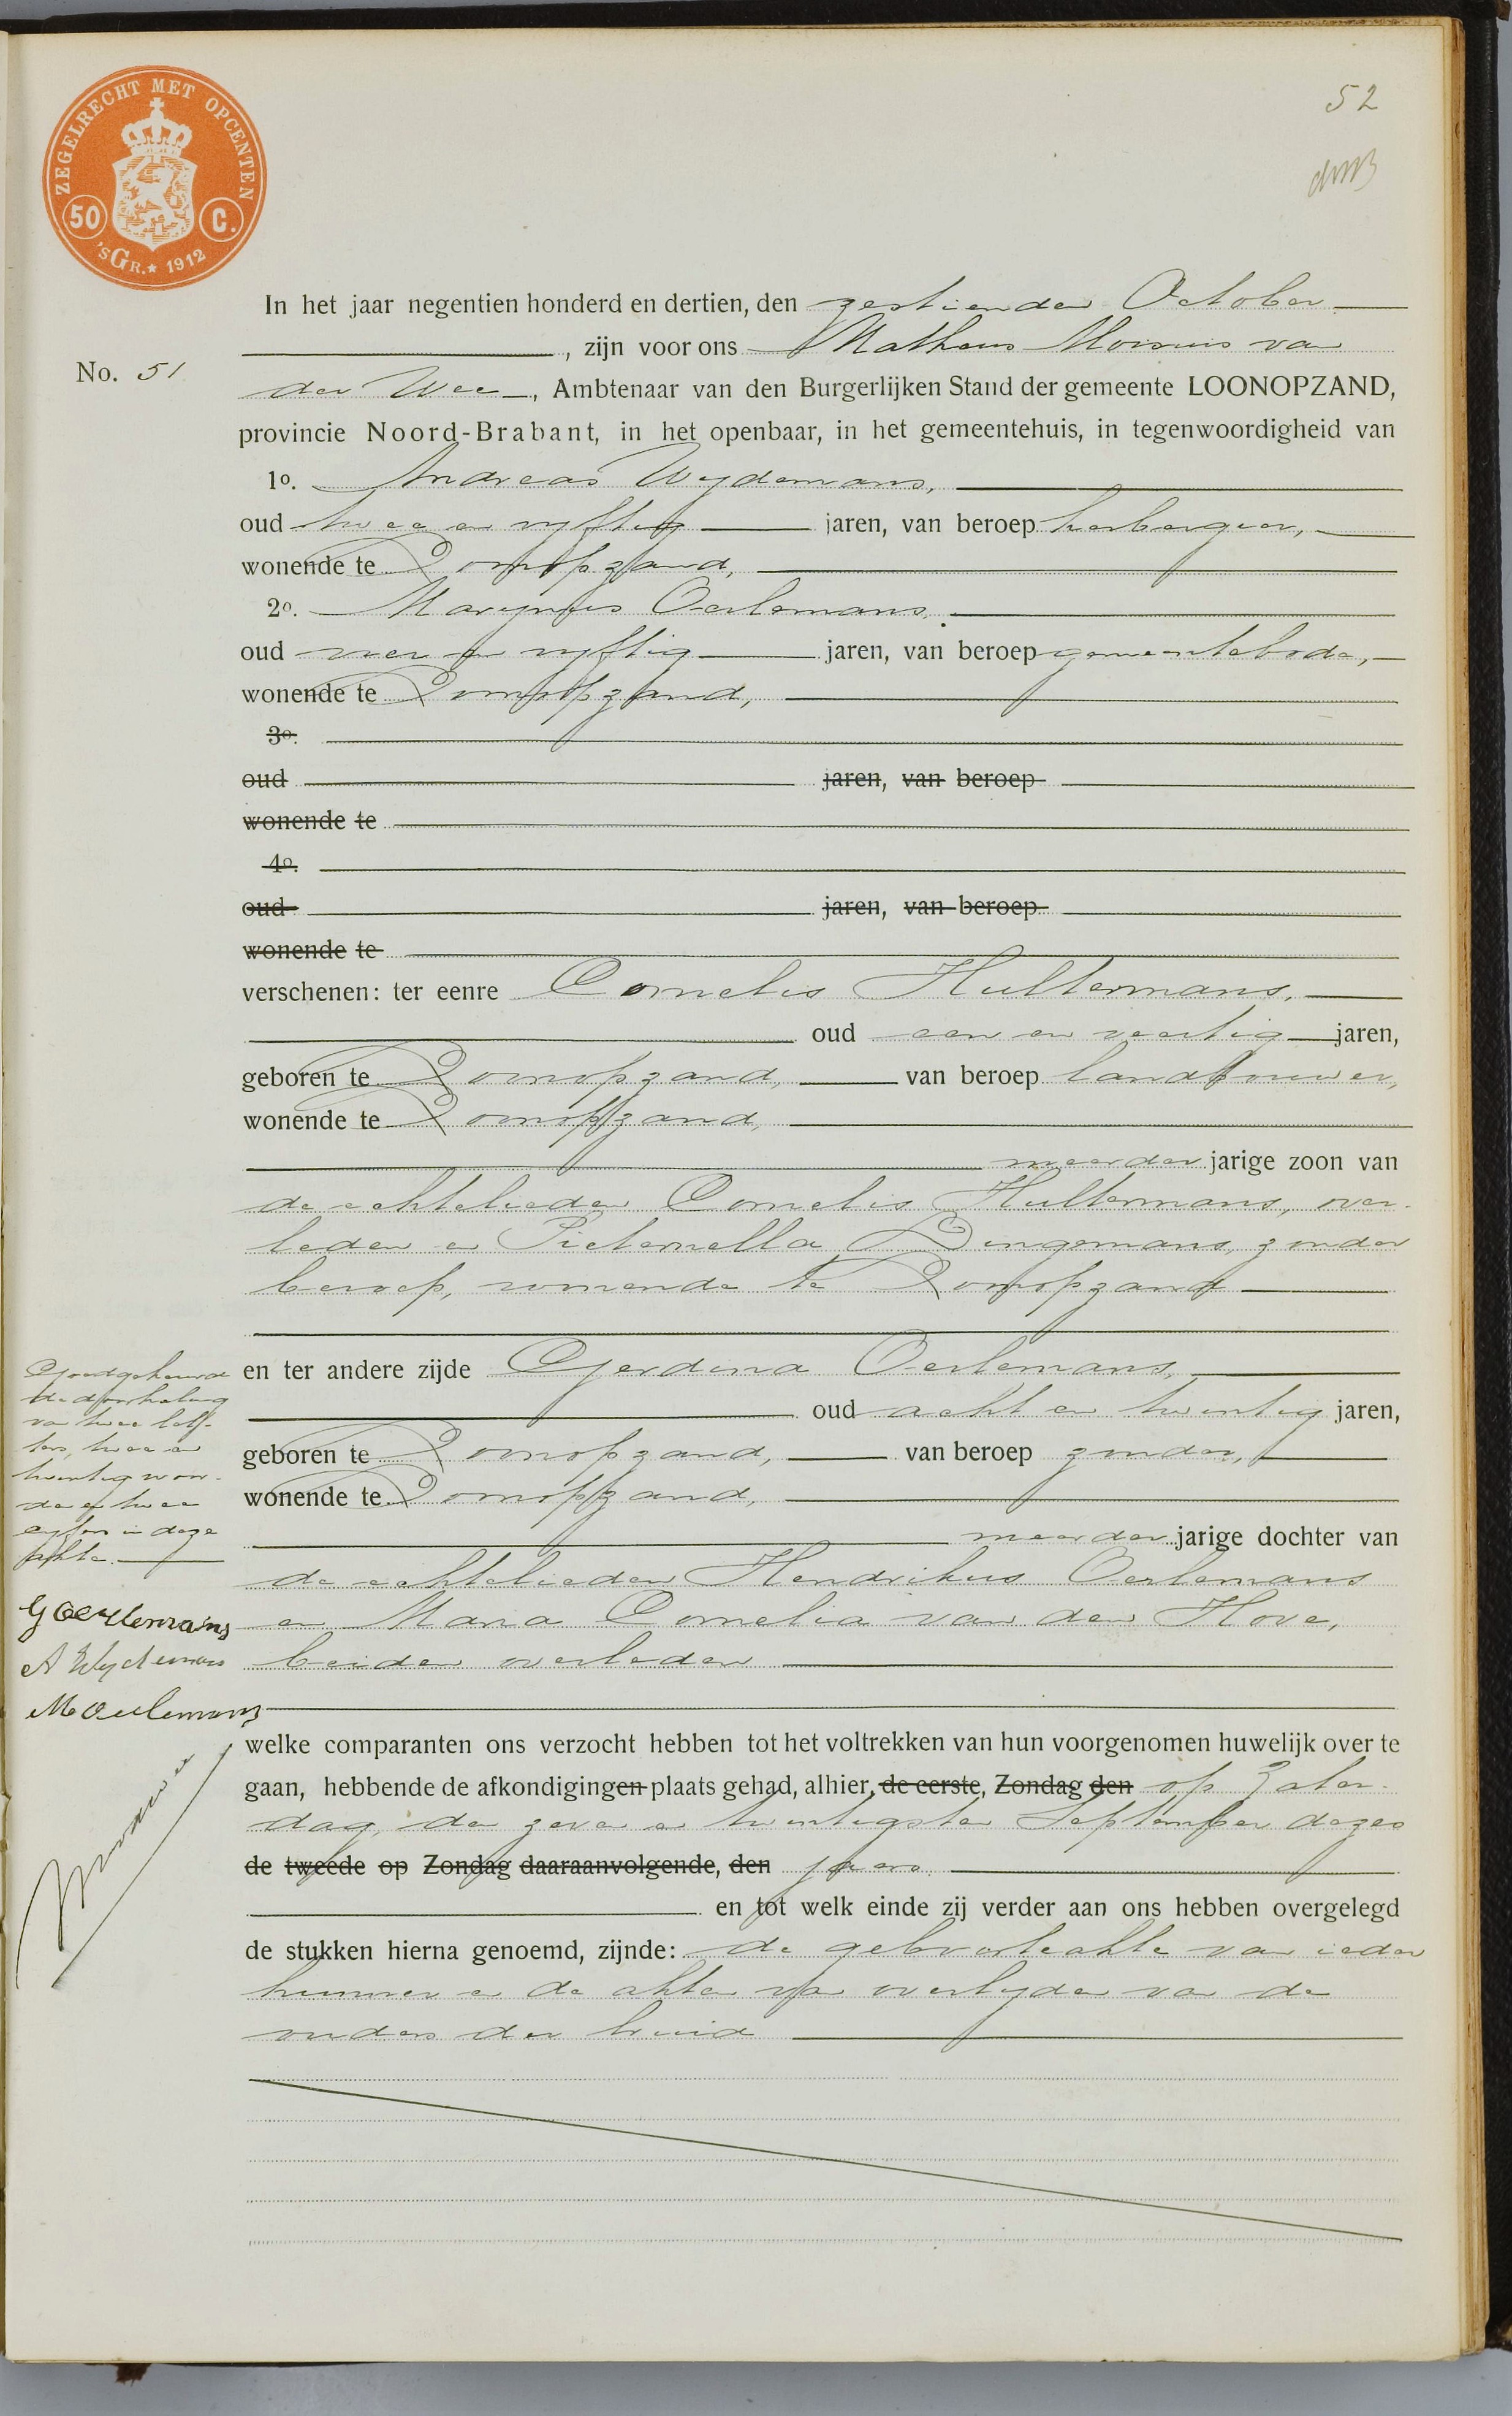 52
ZEGELRECHT MET OPCENTEN
50 C.
'sGr.★ 1912
In het jaar negentien honderd en dertien, den zestienden October
No. 51
, zijn voor ons Matheus van
der Wee, Ambtenaar van den Burgerlijken Stand der gemeente LOONOPZAND,
provincie Noord-Brabant, in het openbaar, in het gemeentehuis, in tegenwoordigheid van
1o. Andreas Wydemans,
oud twee en vyftig jaren, van beroep herbergier,
wonende te Loonopzand,
2o. Marynus Oerlemans,
oud vier en vyftig jaren, van beroep gemeentebode,
wonende te Loonopzand,
3o.
oud jaren, van beroep
wonende te
4o.
oud jaren, van beroep
wonende te
verschenen: ter eenre Cornelis Hultermans,
oud een en veertig jaren,
geboren te Loonopzand, van beroep landbouwer,
wonende te Loonopzand,
meerder jarige zoon van
de echtelieden Cornelis Hultermans, over-
leden en Pieternella Dingemans, zonder
beroep, wonende te Loonopzand
en ter andere zijde Gerdina Oerlemans,
oud acht en twintig jaren,
geboren te Loonopzand, van beroep zonder,
wonende te Loonopzand,
meerder jarige dochter van
de echtelieden Hendrikus Oerlemans
en Maria Cornelia van den Hove,
beiden overleden
Goedgekeurd
de doorhaling
van twee let-
ters, twee en
twintig woor-
den en twee
cyfers in deze
akte.
G Oerlemans
A Wydemans
M Oerlemans
welke comparanten ons verzocht hebben tot het voltrekken van hun voorgenomen huwelijk over te
gaan, hebbende de afkondigingen plaats gehad, alhier, de eerste, Zondag den op Zater-
dag, den zeven en twintigsten September dezes
de tweede op Zondag daaraanvolgende, den jaars.
en tot welk einde zij verder aan ons hebben overgelegd
de stukken hierna genoemd, zijnde: de geboorteakte van ieder
hunner en de akten van overlyden van de
ouders der bruid